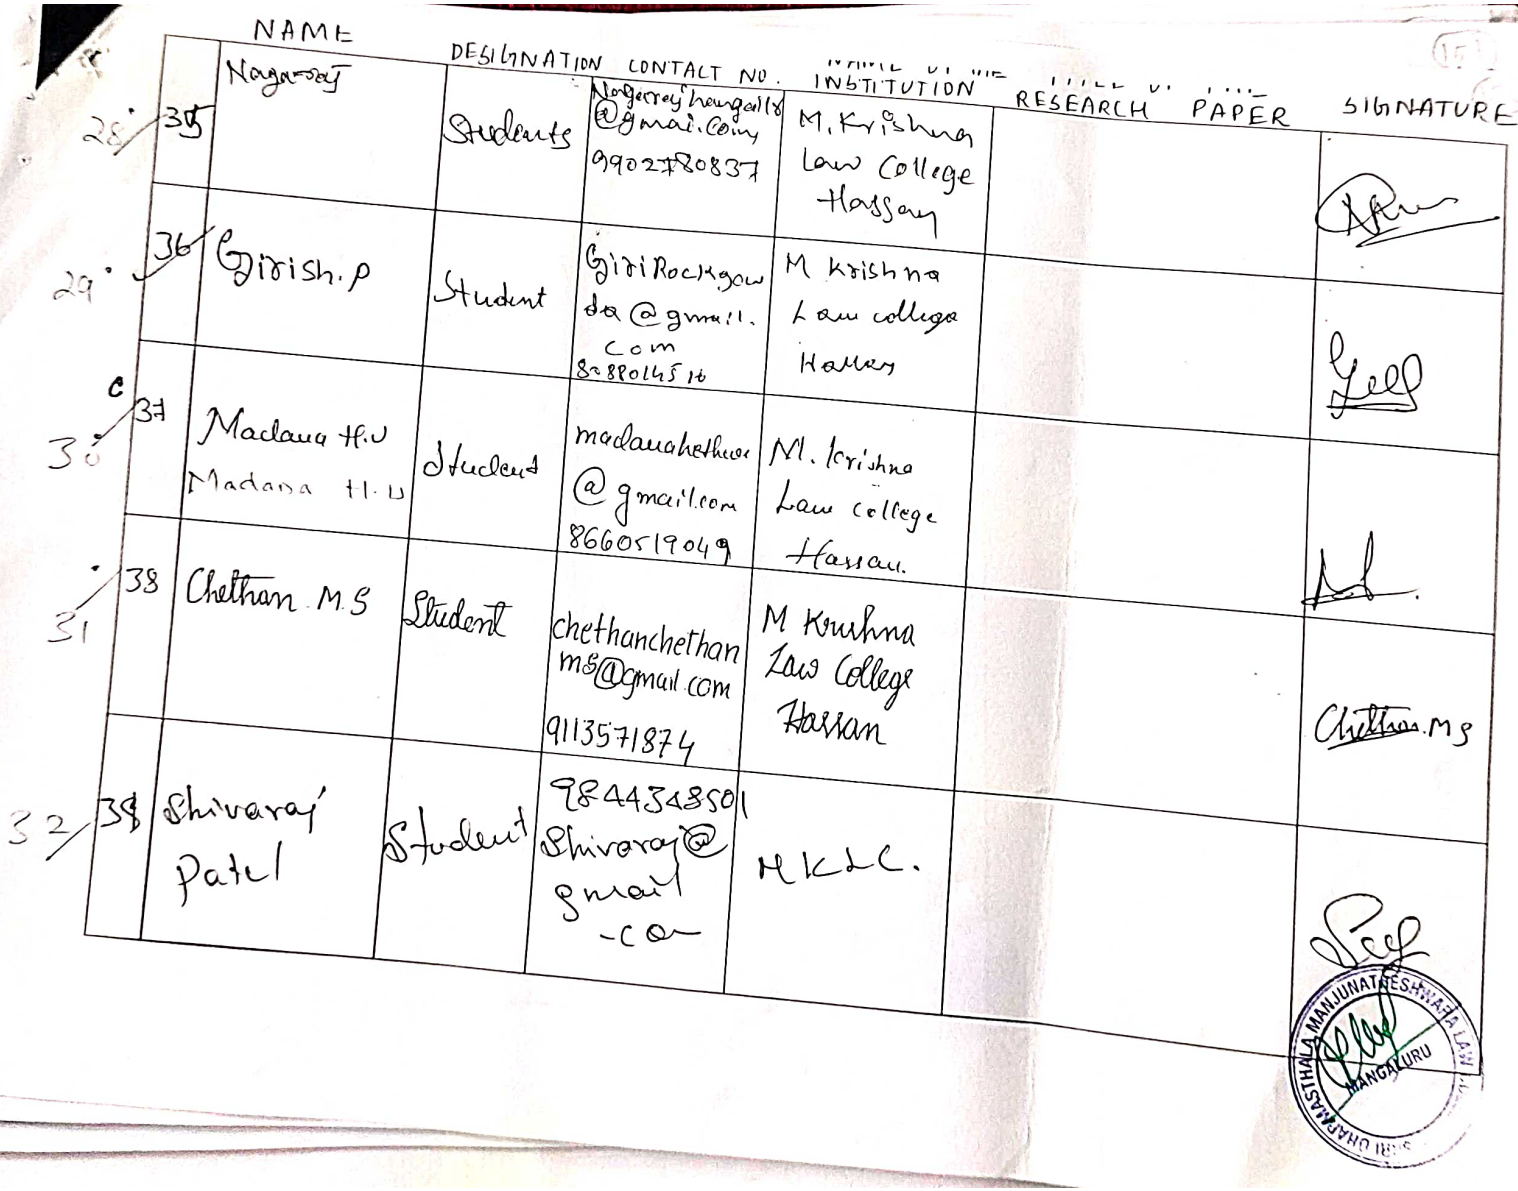 NAME DESIGNATION CONTACT NO. INSTITUTION RESEARCH PAPER SIGNATURE
15
28. 35 Nagaraj
Students
@gmai.com,
9902780837
M. Krishna
Law College
Hassan
29. 36 Girish.P
Student
GiriRockgow
da@gmail.
com
M Krishna
Law college
Hassan
30 37 Madana H.U
Madana H.U
Student
@gmail.com
8660519049
M. Krishna
Law College
Hassan.
31 38 Chethan M.S
Student
chethanchethan
ms@gmail.com
9113571874
M Krushna
Law College
Hassan
Chethan.M S
32 39 Shivaraj
Patel
Student
9844348501
Shivaraj@
gmail
MKLC.
SRI DHARMASTHALA MANJUNATHESHWARA LAW
MANGALURU